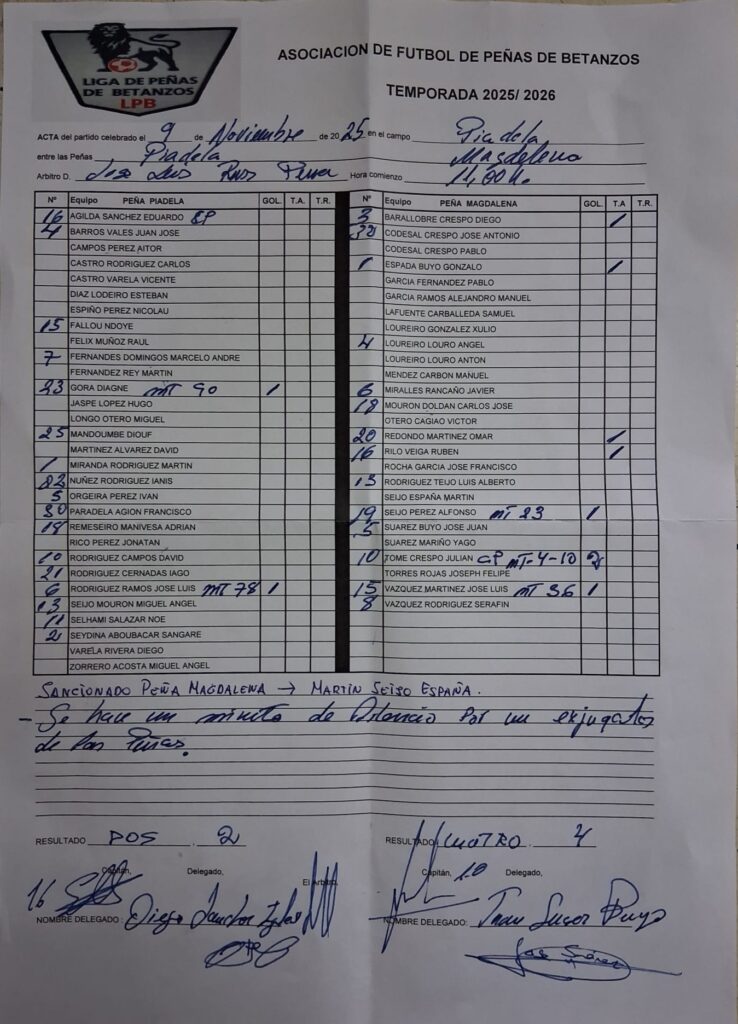 LIGA DE PEÑAS
DE BETANZOS
LPB
ASOCIACION DE FUTBOL DE PEÑAS DE BETANZOS
TEMPORADA 2025/ 2026
ACTA del partido celebrado el 9 de Noviembre de 2025 en el campo Piadela
entre las Peñas Piadela Magdalena
Arbitro D. Jose Luis Hora comienzo 11,00 H.
Nº Equipo PEÑA PIADELA GOL. T.A. T.R.
16 AGILDA SANCHEZ EDUARDO CP
4 BARROS VALES JUAN JOSE
CAMPOS PEREZ AITOR
CASTRO RODRIGUEZ CARLOS
CASTRO VARELA VICENTE
DIAZ LODEIRO ESTEBAN
ESPIÑO PEREZ NICOLAU
15 FALLOU NDOYE
FELIX MUÑOZ RAUL
7 FERNANDES DOMINGOS MARCELO ANDRE
FERNANDEZ REY MARTIN
23 GORA DIAGNE MT 90 1
JASPE LOPEZ HUGO
LONGO OTERO MIGUEL
25 MANDOUMBE DIOUF
MARTINEZ ALVAREZ DAVID
1 MIRANDA RODRIGUEZ MARTIN
82 NUÑEZ RODRIGUEZ IANIS
5 ORGEIRA PEREZ IVAN
30 PARADELA AGION FRANCISCO
19 REMESEIRO MANIVESA ADRIAN
RICO PEREZ JONATAN
10 RODRIGUEZ CAMPOS DAVID
21 RODRIGUEZ CERNADAS IAGO
6 RODRIGUEZ RAMOS JOSE LUIS MT 78 1
13 SEIJO MOURON MIGUEL ANGEL
11 SELHAMI SALAZAR NOE
2 SEYDINA ABOUBACAR SANGARE
VARELA RIVERA DIEGO
ZORRERO ACOSTA MIGUEL ANGEL
Nº Equipo PEÑA MAGDALENA GOL. T.A T.R.
3 BARALLOBRE CRESPO DIEGO 1
CODESAL CRESPO JOSE ANTONIO
CODESAL CRESPO PABLO
1 ESPADA BUYO GONZALO 1
GARCIA FERNANDEZ PABLO
GARCIA RAMOS ALEJANDRO MANUEL
LAFUENTE CARBALLEDA SAMUEL
LOUREIRO GONZALEZ XULIO
4 LOUREIRO LOURO ANGEL
LOUREIRO LOURO ANTON
MENDEZ CARBON MANUEL
6 MIRALLES RANCAÑO JAVIER
18 MOURON DOLDAN CARLOS JOSE
OTERO CAGIAO VICTOR
20 REDONDO MARTINEZ OMAR 1
16 RILO VEIGA RUBEN 1
ROCHA GARCIA JOSE FRANCISCO
13 RODRIGUEZ TEIJO LUIS ALBERTO
SEIJO ESPAÑA MARTIN
19 SEIJO PEREZ ALFONSO MT 23 1
5 SUAREZ BUYO JOSE JUAN
SUAREZ MARIÑO YAGO
10 TOME CRESPO JULIAN CP MT-4-10 2
TORRES ROJAS JOSEPH FELIPE
15 VAZQUEZ MARTINEZ JOSE LUIS MT 36 1
8 VAZQUEZ RODRIGUEZ SERAFIN
SANCIONADO PEÑA MAGDALENA → MARTIN SEIJO ESPAÑA.
- Se hace un minuto de silencio por un exjugador
de las Peñas.
RESULTADO DOS 2
RESULTADO CUATRO 4
Capitán, Delegado, El Arbitro,
Capitán, 10 Delegado,
16
NOMBRE DELEGADO: Diego
NOMBRE DELEGADO: